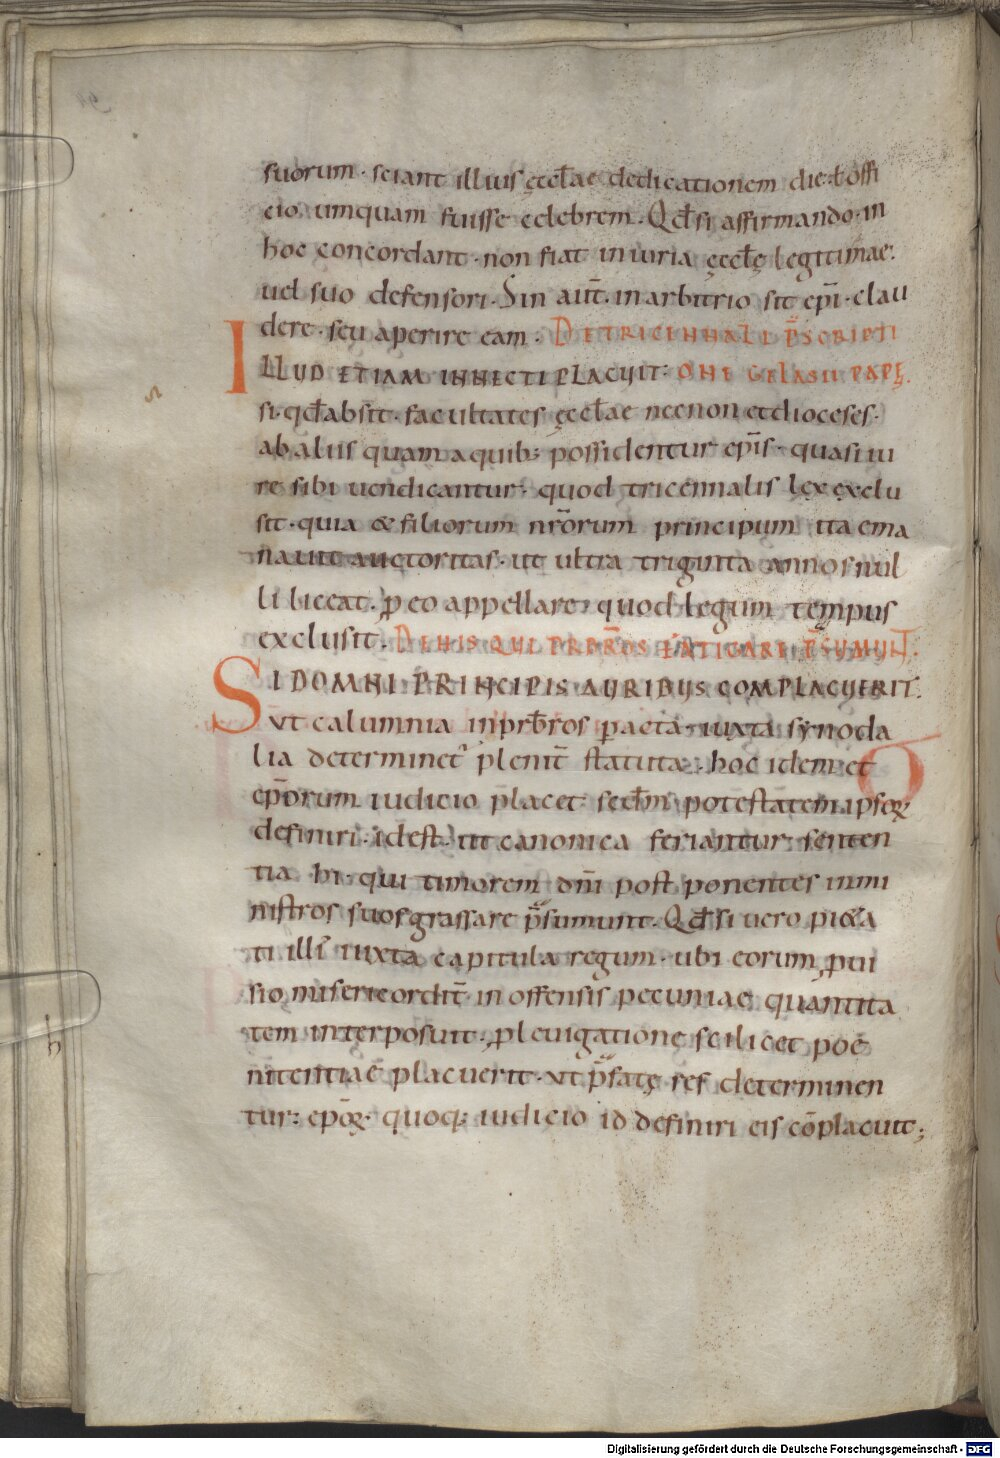 suorum · sciant illius ęccłae dedicationem die · ł offi
cio umquam fuisse celebrem · Qđ si affirmando · in
hoc concordant · non fiat iniuria ęccłę legitimae ·
uel suo defensori · Sin aut̄ · in arbitrio sit ep̄i · clau
dere · seu aperire eam · DE TRICENNALI P̄SCRIPTI
ILLUD ETIAM INNECTI PLACUIT · ONE GELASII PAPĘ ·
si · qđ absit · facultates ęccłae necnon et dioceses ·
ab aliis quam a quib; possidentur ep̄is · quasi iu
re sibi uendicantur · quod tricennalis lex exclu
sit · quia & filiorum nr̄orum principum ita ema
nauit auctoritas · ut ultra triginta annos nul
li liceat · ꝓ eo appellare · quod legum tempus
exclusit · DE HIS QUI PRBR̄OS P̄SUMUNT ·
SI DOMNI PRINCIPIS AURIBUS COMPLACUERIT ·
Ut calumnia in prb̄ros peracta · iuxta synoda
lia determinet᷑ plenit̄ statuta · hoc idem et
ep̄orum iudicio placet · secd̄m potestatem ipsoꝝ
definiri · idest · ut canonica feriantur senten
tia · hi · qui timorem dn̄i post ponentes in mi
nistros suos grassare p̄sumunt · Qđ si uero pi&a
ti illi᷑ iuxta capitula regum · ubi eorum ꝓtu
sio misericordit̄ · in offensis pecuniae quantita
tem interposuit · ꝓ leuigatione scilicet poe
nitentiae placuerit · ut p̄fatę res determinen
tur · ep̄oꝝ · quoq; iudicio id definiri eis cōplacuit ;
Digitalisierung gefördert durch die Deutsche Forschungsgemeinschaft - DFG